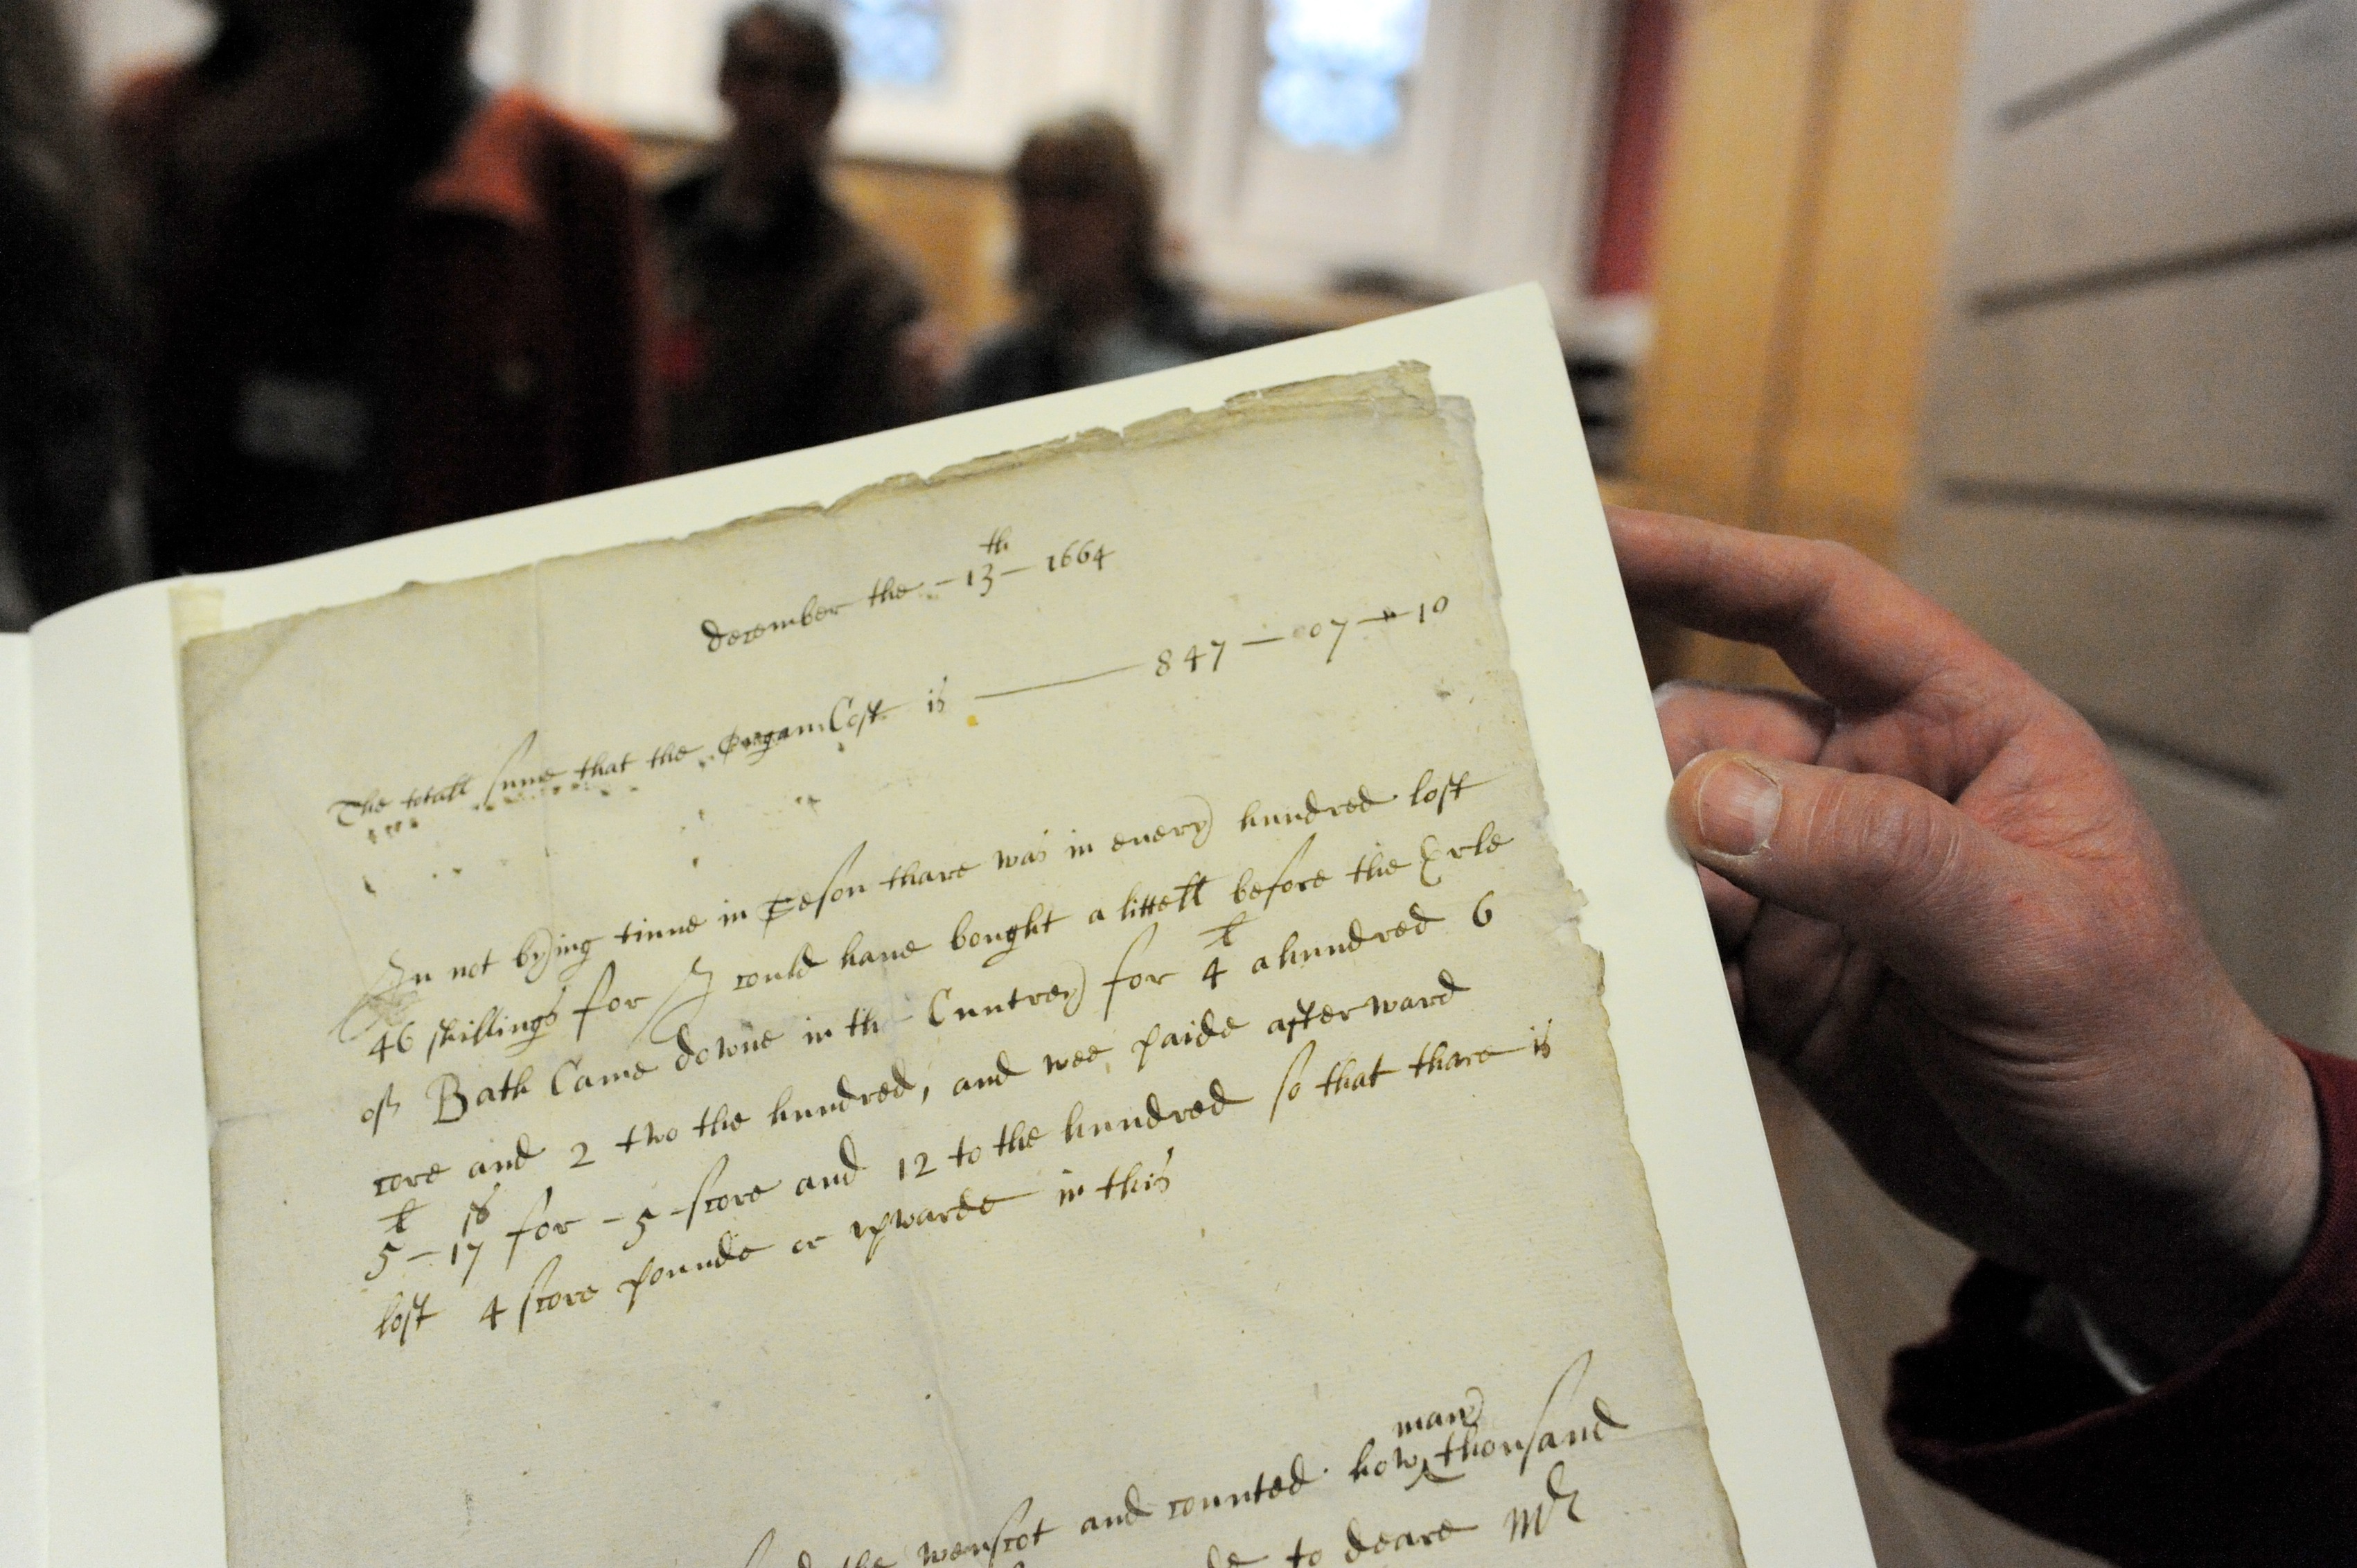 december the - 13th - 1664
The totall sume that the Organ Cost is — 847 — 07 — 10
In not bying tinne in season thare was in every hundred lost
46 shillings for I could have bought a littell before the Erle
of Bath Came downe in the Cuntrey for 4 l a hundred 6
core and 2 two the hundred, and wee paide afterward
5 l - 17 s for - 5 - score and 12 to the hundred so that thare is
lost 4 score pounde or upwarde in this
the wenscot and counted how many thousand
to deare Mr